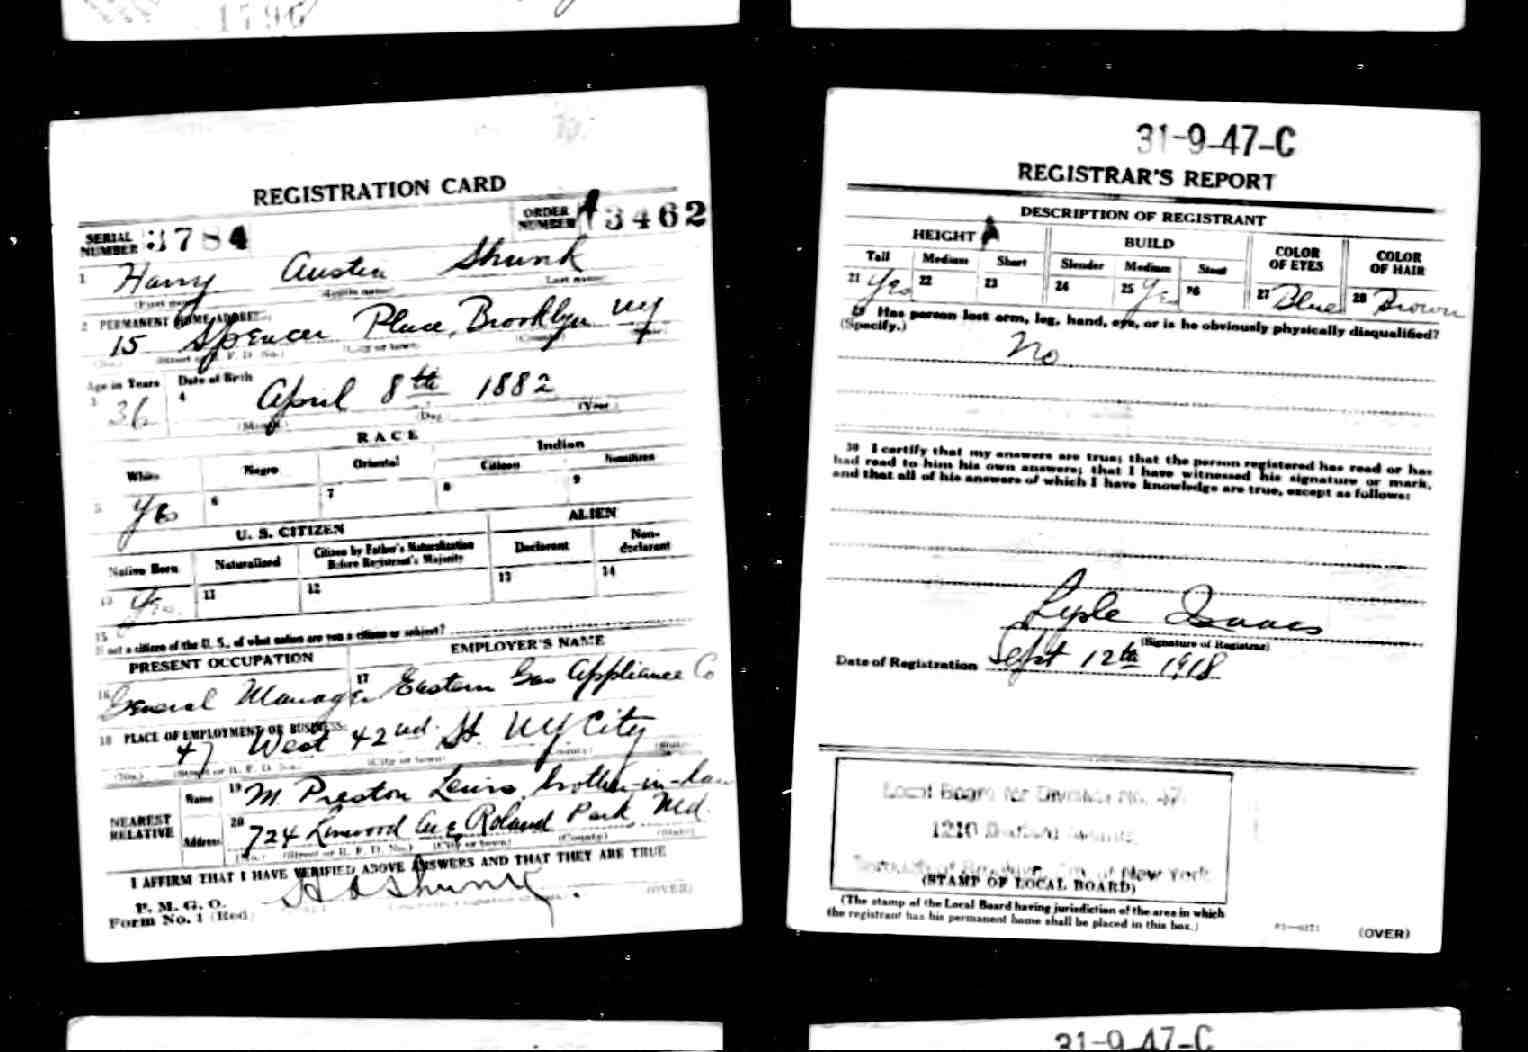 1796
REGISTRATION CARD
SERIAL NUMBER 3784
ORDER NUMBER A3462
1 Harry Austin Shunk
(First name) (Middle name) (Last name)
2 PERMANENT HOME ADDRESS:
15 Spencer Place, Brooklyn NY
(No.) (Street or R. F. D. No.) (City or town) (County)
Age in Years Date of Birth
3 36 4 April 8th 1882
(Month.) (Day.) (Year.)
RACE
White Negro Oriental Indian
Citizen Noncitizen
5 Yes 6 7 8 9
U. S. CITIZEN ALIEN
Native Born Naturalized Citizen by Father's Naturalization Before Registrant's Majority Declarant Non-declarant
10 Yes 11 12 13 14
15 If not a citizen of the U. S., of what nation are you a citizen or subject?
PRESENT OCCUPATION EMPLOYER'S NAME
16 General Manager 17 Eastern Gas Appliance Co
18 PLACE OF EMPLOYMENT OR BUSINESS:
47 West 42nd. St. NY City
(No.) (Street or R. F. D. No.) (City or town) (County) (State)
NEAREST RELATIVE
Name 19 M. Preston Lewis, brother-in-law
Address 20 724 Linwood Ave Roland Park Md.
(No.) (Street or R. F. D. No.) (City or town) (County) (State)
I AFFIRM THAT I HAVE VERIFIED ABOVE ANSWERS AND THAT THEY ARE TRUE
P. M. G. O.
Form No. 1 (Red) H A Shunk (OVER)
31-9-47-C
REGISTRAR'S REPORT
DESCRIPTION OF REGISTRANT
HEIGHT BUILD COLOR OF EYES COLOR OF HAIR
Tall Medium Short Slender Medium Stout
21 Yes 22 23 24 25 Yes 26 27 Blue 28 Brown
29 Has person lost arm, leg, hand, eye, or is he obviously physically disqualified?
(Specify.)
No
30 I certify that my answers are true; that the person registered has read or has
had read to him his own answers; that I have witnessed his signature or mark,
and that all of his answers of which I have knowledge are true, except as follows:
Lysle Isaacs
(Signature of Registrar)
Date of Registration Sept 12th 1918
Local Board for Division No. 47
1210
of New York
(STAMP OF LOCAL BOARD)
(The stamp of the Local Board having jurisdiction of the area in which
the registrant has his permanent home shall be placed in this box.)
(OVER)
31-9-47-C